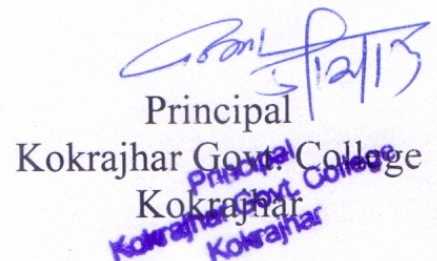 Principal
Kokrajhar Govt. College
Kokrajhar
Principal
Kokrajhar Govt. College
Kokrajhar